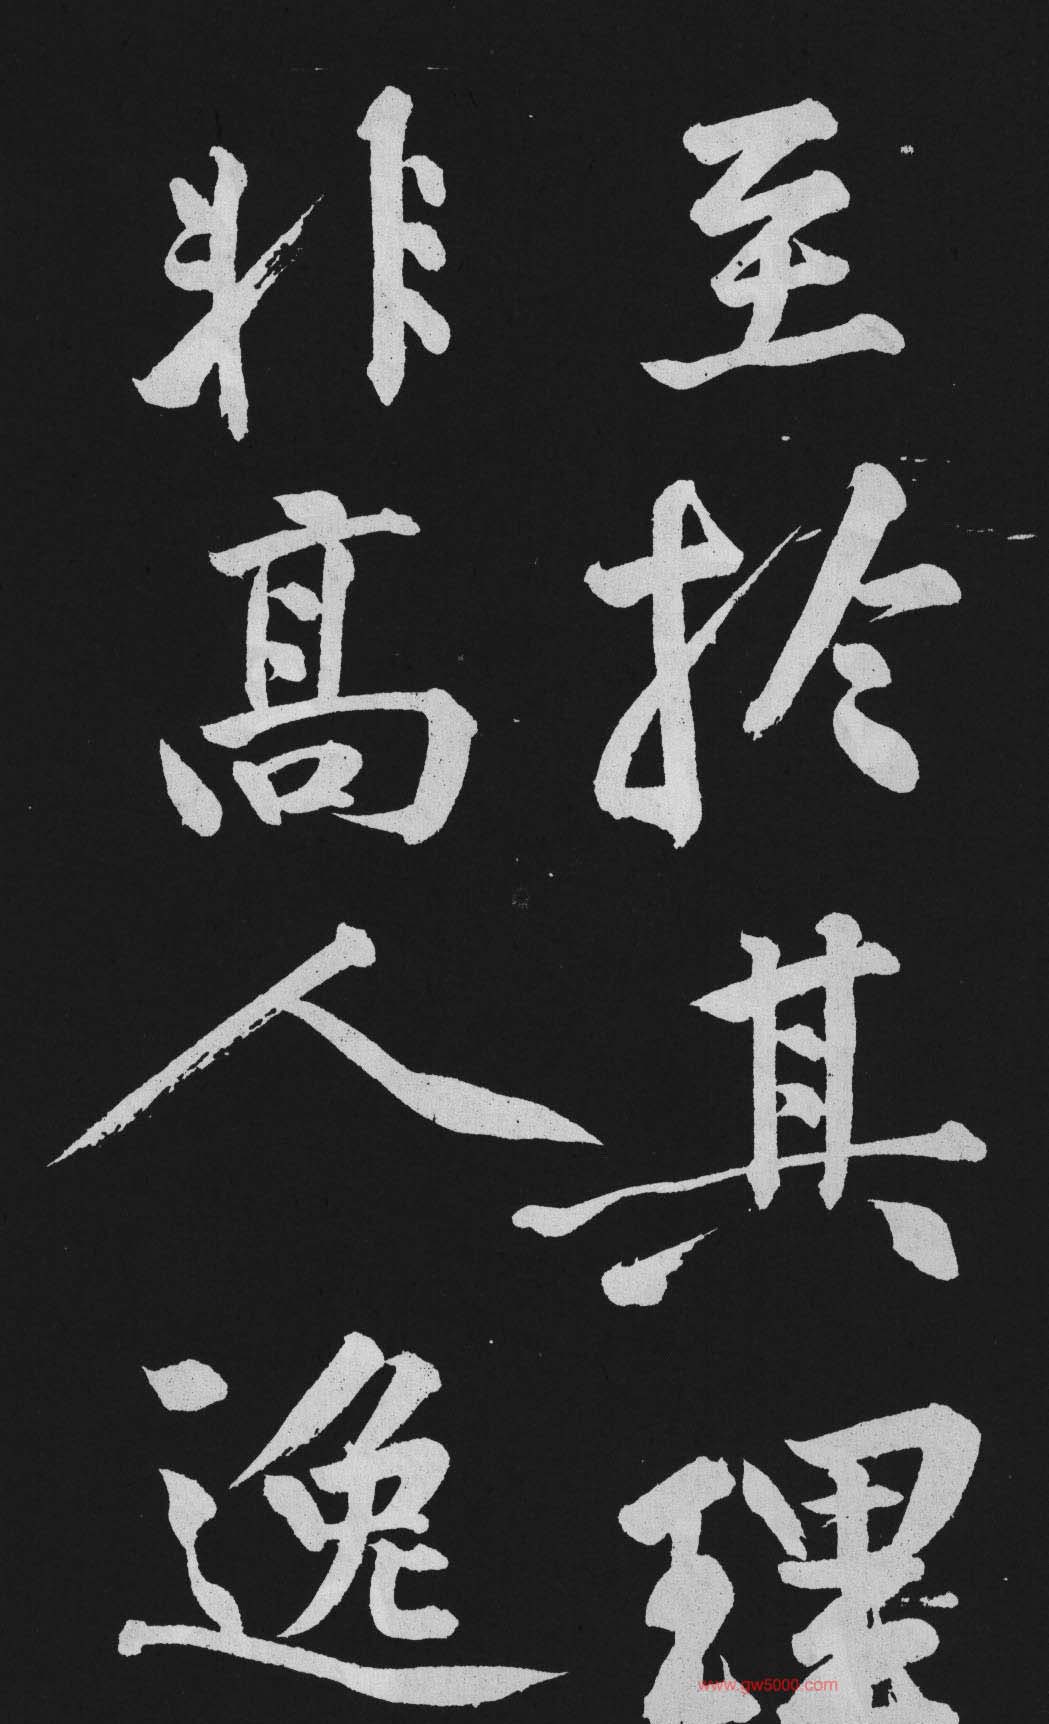 至於其理
非高人逸
www.gw5000.com